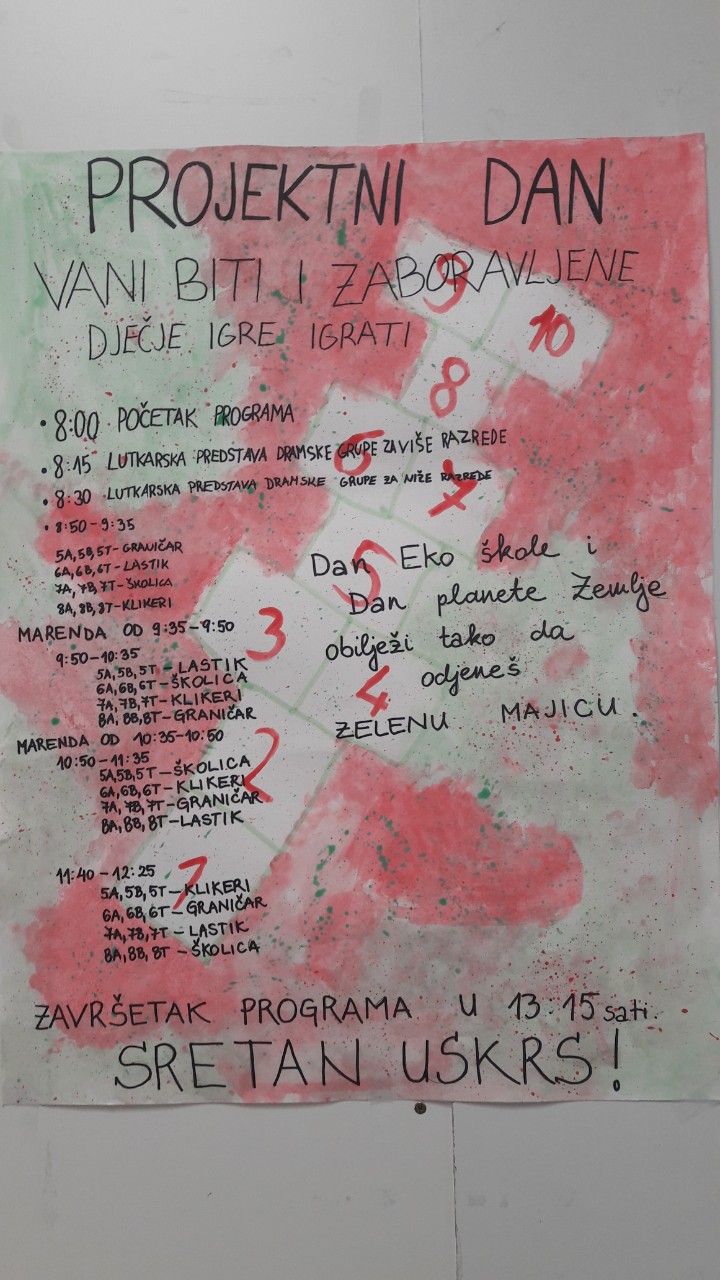 PROJEKTNI DAN
VANI BITI I ZABORAVLJENE
DJEČJE IGRE IGRATI
• 8:00 POČETAK PROGRAMA
• 8:15 LUTKARSKA PREDSTAVA DRAMSKE GRUPE ZA VIŠE RAZREDE
• 8:30 LUTKARSKA PREDSTAVA DRAMSKE GRUPE ZA NIŽE RAZREDE
• 8:50-9:35
5A, 5B, 5T-GRANIČAR
6A, 6B, 6T-LASTIK
7A, 7B, 7T-ŠKOLICA
8A, 8B, 8T-KLIKERI
MARENDA OD 9:35-9:50
9:50-10:35
5A, 5B, 5T-LASTIK
6A, 6B, 6T-ŠKOLICA
7A, 7B, 7T-KLIKERI
8A, 8B, 8T-GRANIČAR
MARENDA OD 10:35-10:50
10:50-11:35
5A, 5B, 5T-ŠKOLICA
6A, 6B, 6T-KLIKERI
7A, 7B, 7T-GRANIČAR
8A, 8B, 8T-LASTIK
11:40-12:25
5A, 5B, 5T-KLIKERI
6A, 6B, 6T-GRANIČAR
7A, 7B, 7T-LASTIK
8A, 8B, 8T-ŠKOLICA
Dan Eko škole i
Dan planete Zemlje
obilježi tako da
odjeneš
ZELENU MAJICU.
9
10
8
6
7
5
3
4
2
1
ZAVRŠETAK PROGRAMA U 13:15 sati.
SRETAN USKRS!